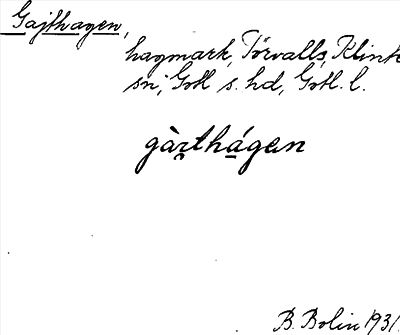 Gajthagen,
hagmark, Törvalls, Klinte
sn, Gotl s. hd, Gotl. l.
gàrthágen
B. Bolin 1931.